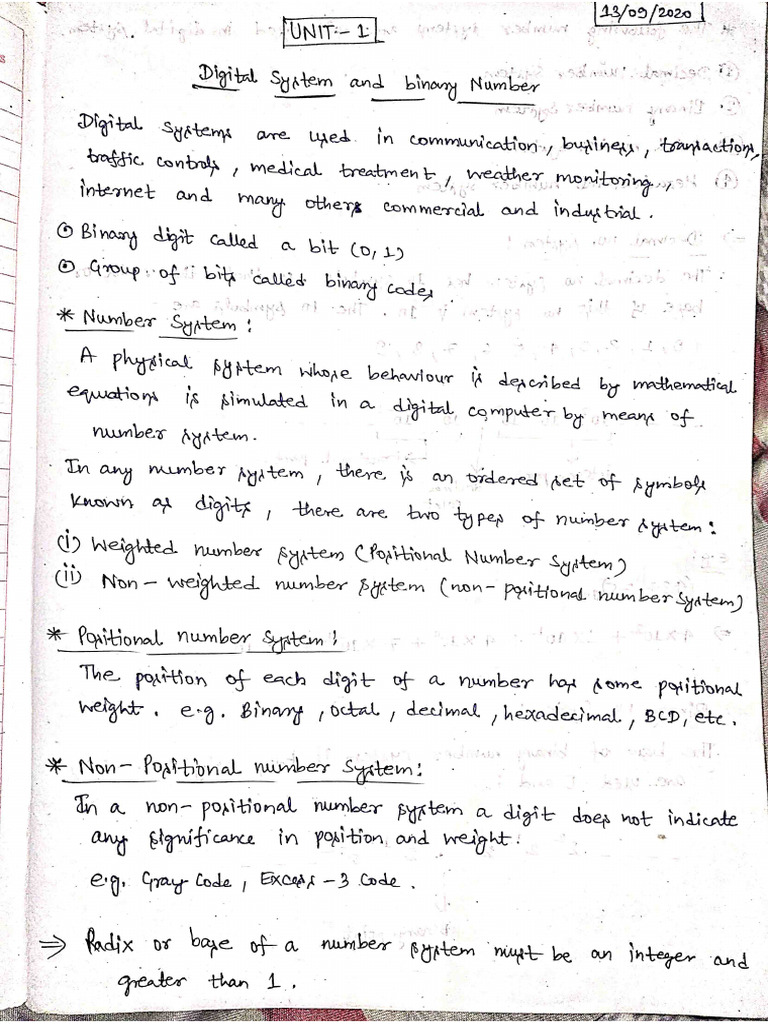 13/09/2020
UNIT:- 1
Digital System and binary Number
Digital Systems are used in communication, business, transactions,
traffic controls, medical treatment, weather monitoring,
internet and many others commercial and industrial.
⊙ Binary digit called a bit (0,1)
⊙ Group of bits called binary codes
* Number System:
A physical system whose behaviour is described by mathematical
equations is simulated in a digital computer by means of
number system.
In any number system, there is an ordered set of symbols
known as digits, there are two types of number system:
(i) Weighted number system (Positional Number System)
(ii) Non-weighted number system (non-positional number system)
* Positional number System:
The position of each digit of a number has some positional
weight. e.g. Binary, octal, decimal, hexadecimal, BCD, etc.
* Non-Positional number System:
In a non-positional number system a digit does not indicate
any significance in position and weight.
e.g. Gray Code, Excess-3 Code.
⇒ Radix or base of a number system must be an integer and
greater than 1.